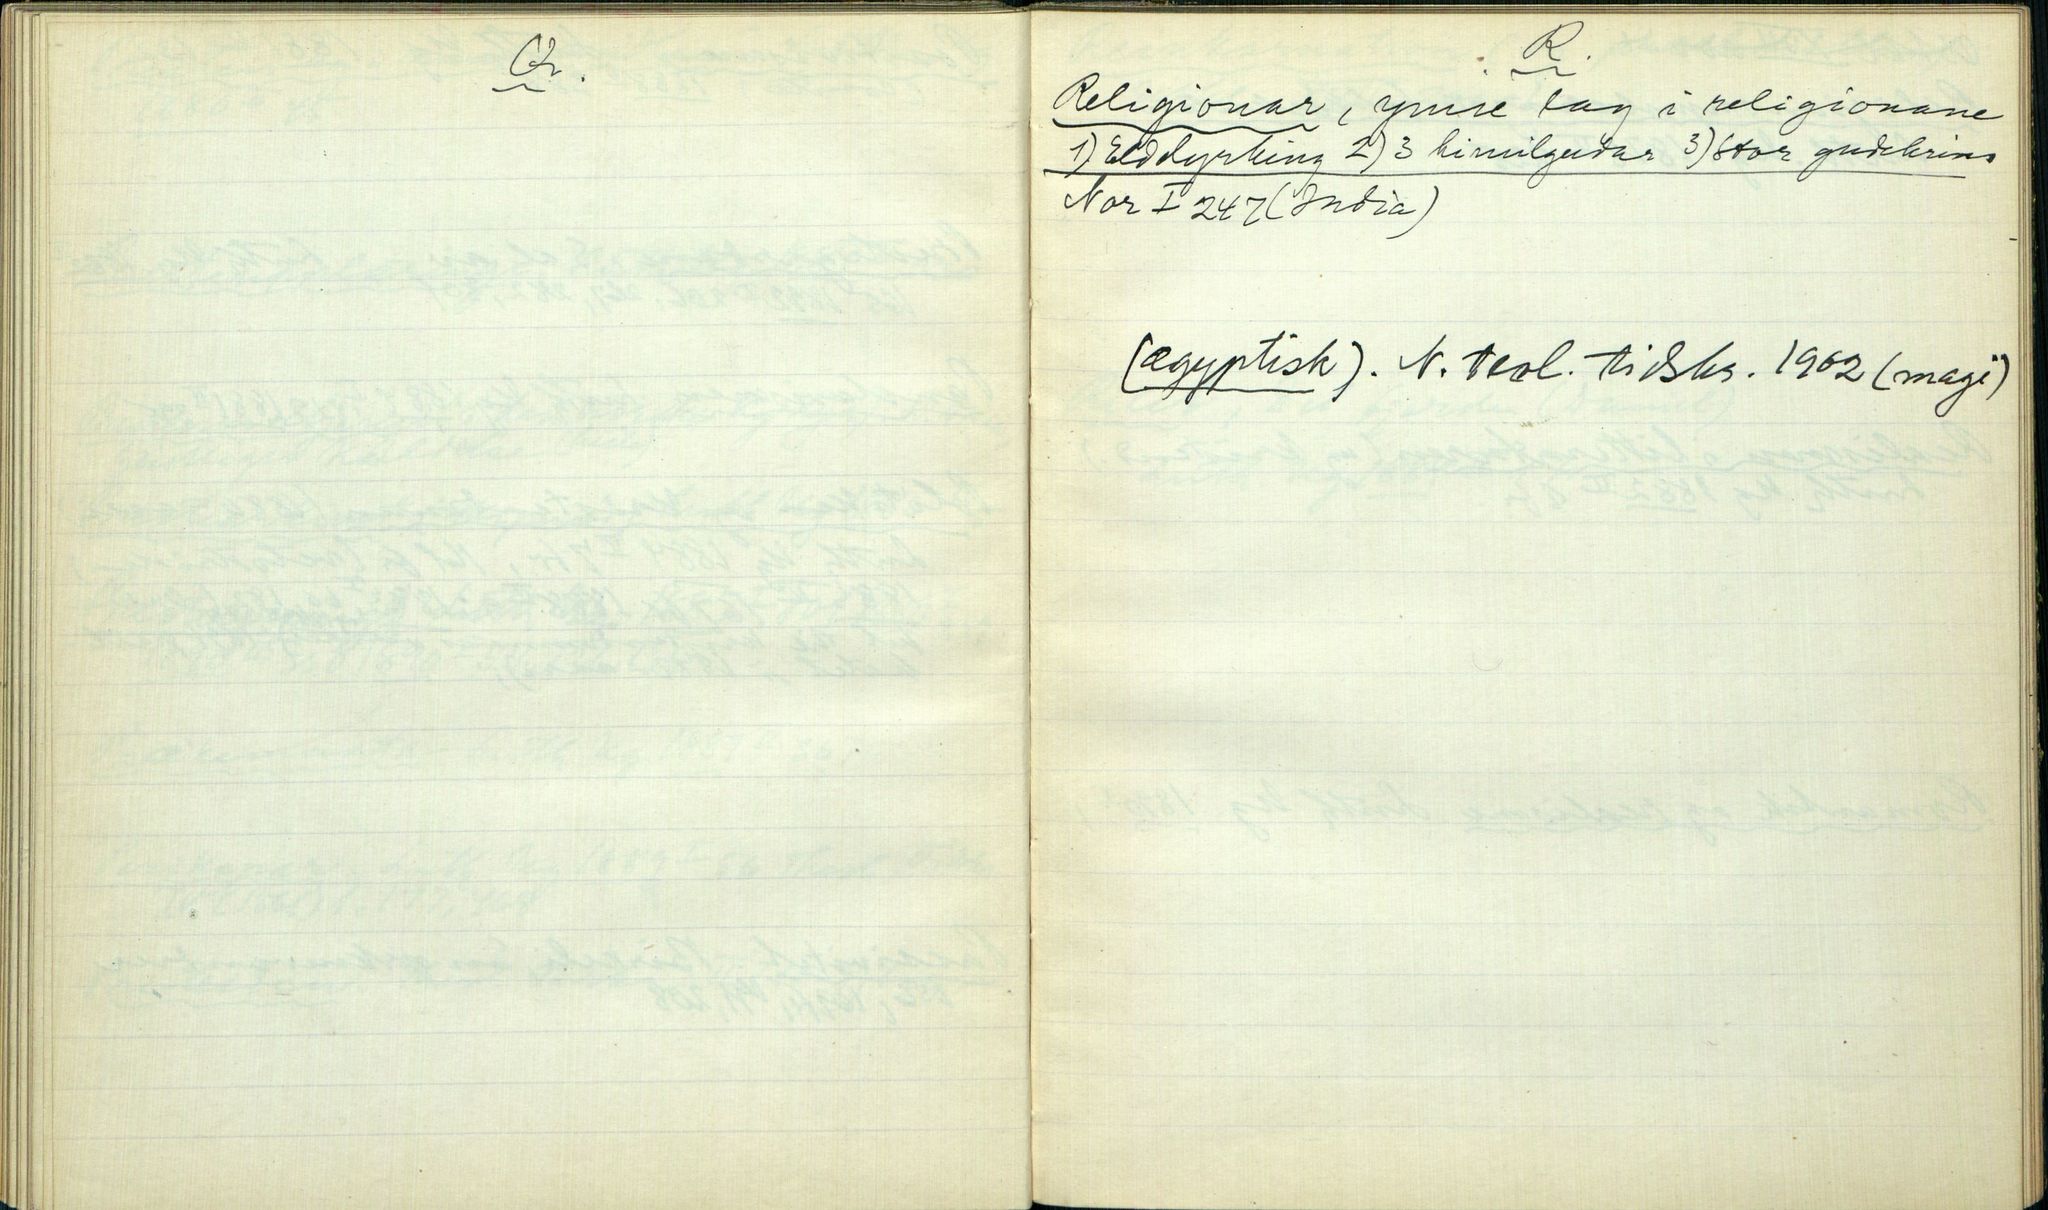 Q.
R.
Religionar, ymse lag i religionane
1) Elddyrking 2) 3 himilgudar 3) Stor gudekrins
Nor I 247 (India)
(ægyptisk). N. teol. tidskr. 1902 (magi)